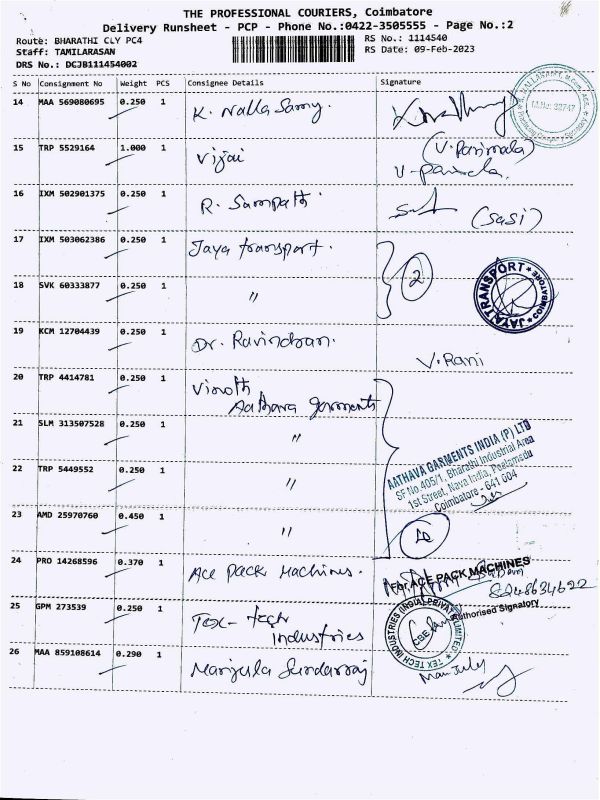 THE PROFESSIONAL COURIERS, Coimbatore
Delivery Runsheet - PCP - Phone No.:0422-3505555 - Page No.:2
Route: BHARATHI CLY PC4
Staff: TAMILARASAN
DRS No.: DCJB111454002
RS No.: 1114540
RS Date: 09-Feb-2023
S No Consignment No Weight PCS Consignee Details Signature
14 MAA 569080695 0.250 1 K. Nalla Samy.
15 TRP 5529164 1.000 1 Vijai (V. Parimala)
16 IXM 502901375 0.250 1 R. Sampath. (Sasi)
17 IXM 503062386 0.250 1 Jaya transport. 2
JAYA TRANSPORT COIMBATORE
18 SVK 60333877 0.250 1 "
19 KCM 12704439 0.250 1 Dr. Ravindran. V. Rani
20 TRP 4414781 0.250 1 Vinoth
Aathava garments
21 SLM 313507528 0.250 1 "
AATHAVA GARMENTS INDIA (P) LTD
SF No 405/1, Bharathi Industrial Area
1st Street, Nava India, Peelamedu
Coimbatore - 641 004
22 TRP 5449552 0.250 1 "
23 AMD 25970760 0.450 1 "
24 PRO 14268596 0.370 1 Ace Pack Machines.
For ACE PACK MACHINES
8248634622
Authorised Signatory
25 GPM 273539 0.250 1 Tex-tech
Industries
TEX TECH INDUSTRIES (INDIA) PRIVATE LIMITED
CBE
26 MAA 859108614 0.290 1 Manjula Sundarraj Manjuly